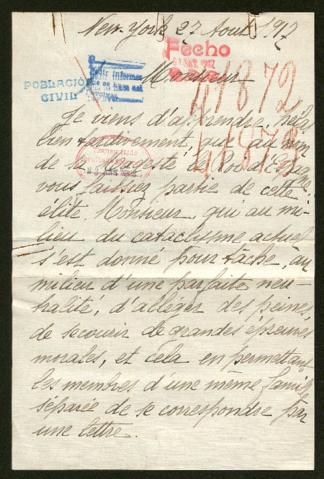 New-York 27 Août 1917
Fecho
POBLACIÓN
CIVIL
Monsieur
41872
Je viens d'apprendre, hélas
bien tardivement, que au nom
de Sa Majesté le Roi d'Espagne
vous faisiez partie de cette
élite, Monsieur, qui au mi-
lieu du cataclysme actuel
s'est donné pour tâche, au
milieu d'une parfaite neu-
tralité, d'alléger des peines,
de secourir de grandes épreuves
morales, et cela en permettant
les membres d'une même famille
séparée de se correspondre par
une lettre.